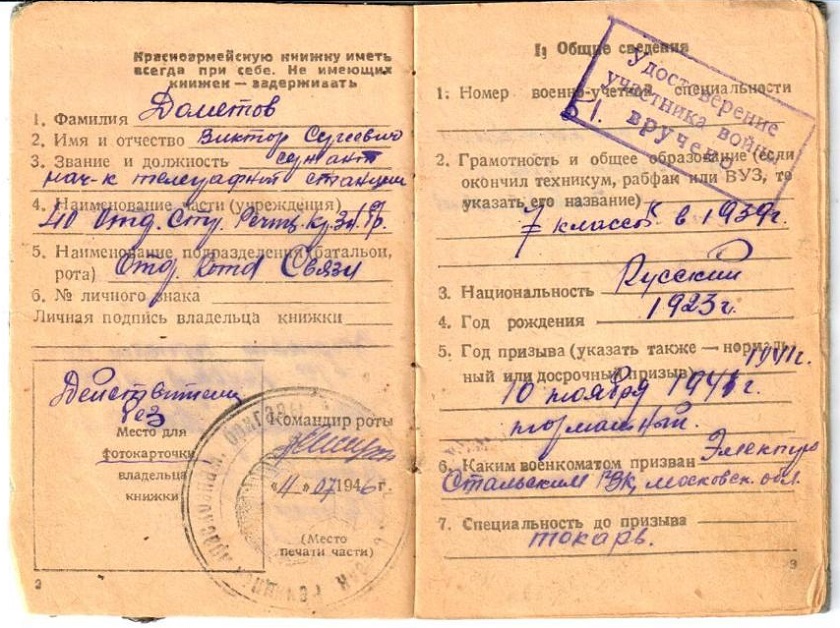 Красноармейскую книжку иметь
всегда при себе. Не имеющих
книжек — задерживать
1. Фамилия Дометов
2. Имя и отчество Виктор Сергеевич
3. Звание и должность сержант
нач-к телеграфной станции
4. Наименование части (учреждения)
40 Отд.
5. Наименование подразделения (батальон,
рота) Отд. Рота Связи
6. № личного знака
Личная подпись владельца книжки
Действительна
без
Место для
фотокарточки
владельца
книжки
Командир роты
«11» 07 1946 г.
(Место
печати части)
2
I. Общие сведения
Удостоверение
участника войны
вручено
1. Номер военно-учетной специальности
51.
2. Грамотность и общее образование (если
окончил техникум, рабфак или ВУЗ, то
указать его название)
7 классов в 1939г.
3. Национальность Русский
4. Год рождения 1923г.
5. Год призыва (указать также — нормаль-
ный или досрочный призыв) 1941г.
10 ноября 1941г.
нормальный.
6. Каким военкоматом призван Электро
Стальским РВК, Московск. обл.
7. Специальность до призыва
токарь.
3